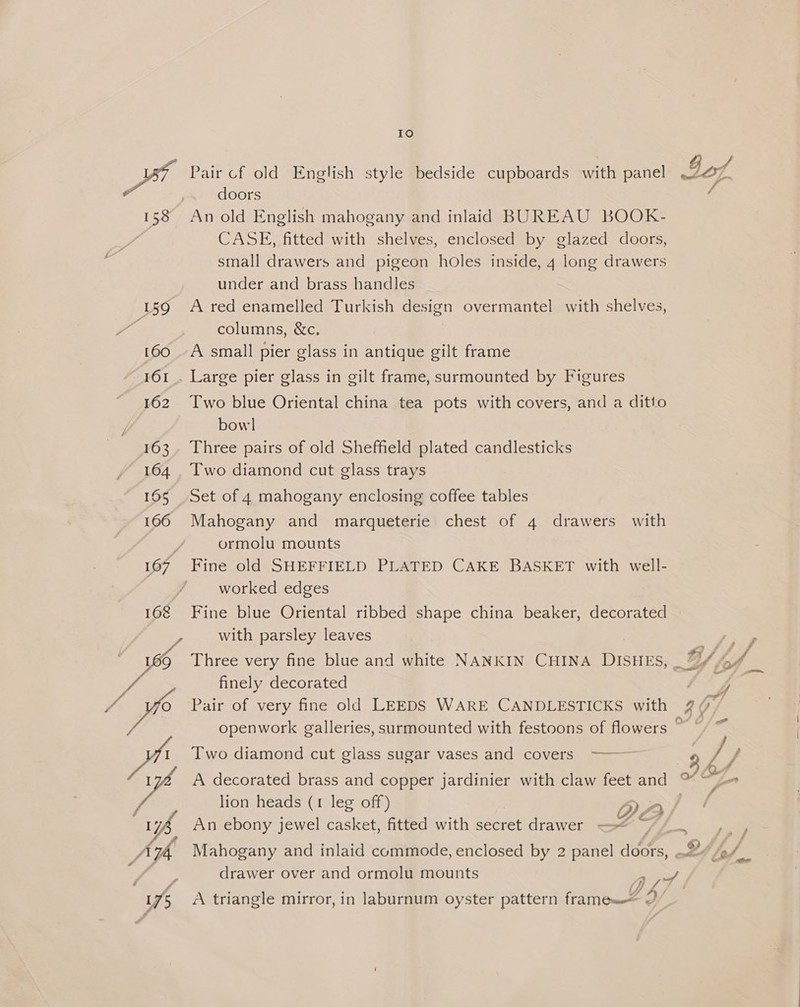 10
157 Pair of old English style bedside cupboards with panel
doors
158 An old English mahogany and inlaid BUREAU BOOK-
CASE, fitted with shelves, enclosed by glazed doors,
small drawers and pigeon holes inside, 4 long drawers
under and brass handles
159 A red enamelled Turkish design overmantel with shelves,
columns, &c.
160 A small pier glass in antique gilt frame
161 Large pier glass in gilt frame, surmounted by Figures
162 Two blue Oriental china tea pots with covers, and a ditto
bowl
163 Three pairs of old Sheffield plated candlesticks
164 Two diamond cut glass trays
165 Set of 4 mahogany enclosing coffee tables
166 Mahogany and marqueterie chest of 4 drawers with
ormolu mounts
167 Fine old SHEFFIELD PLATED CAKE BASKET with well-
worked edges
168 Fine blue Oriental ribbed shape china beaker, decorated
with parsley leaves
169 Three very fine blue and white NANKIN CHINA DISHES,
finely decorated
170 Pair of very fine old LEEDS WARE CANDLESTICKS with
openwork galleries, surmounted with festoons of flowers
171 Two diamond cut glass sugar vases and covers
172 A decorated brass and copper jardinier with claw feet and
lion heads (1 leg off)
173 An ebony jewel casket, fitted with secret drawer
174 Mahogany and inlaid commode, enclosed by 2 panel doors,
drawer over and ormolu mounts
175 A triangle mirror, in laburnum oyster pattern frame